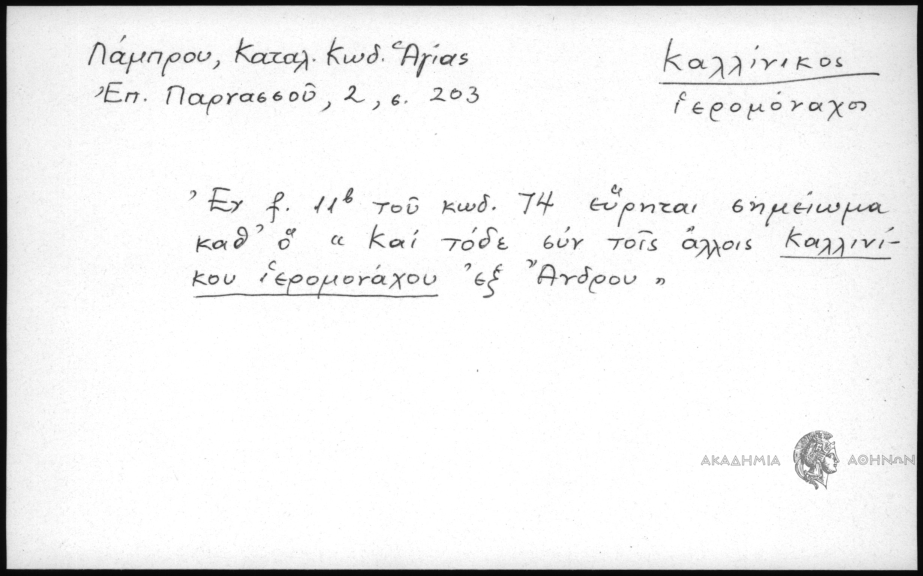 Λάμπρου, Καταλ. Κωδ. Ἁγίας
Ἐπ. Παρνασσοῦ, 2, σ. 203
Καλλίνικος
ἱερομόναχος
Ἐν f. 11β τοῦ κωδ. 74 εὕρηται σημείωμα
καθ' ὅ « Καί τόδε σύν τοῖς ἄλλοις Καλλινί-
κου ἱερομονάχου ἐξ Ἄνδρου »
ΑΚΑΔΗΜΙΑ ΑΘΗΝΩΝ